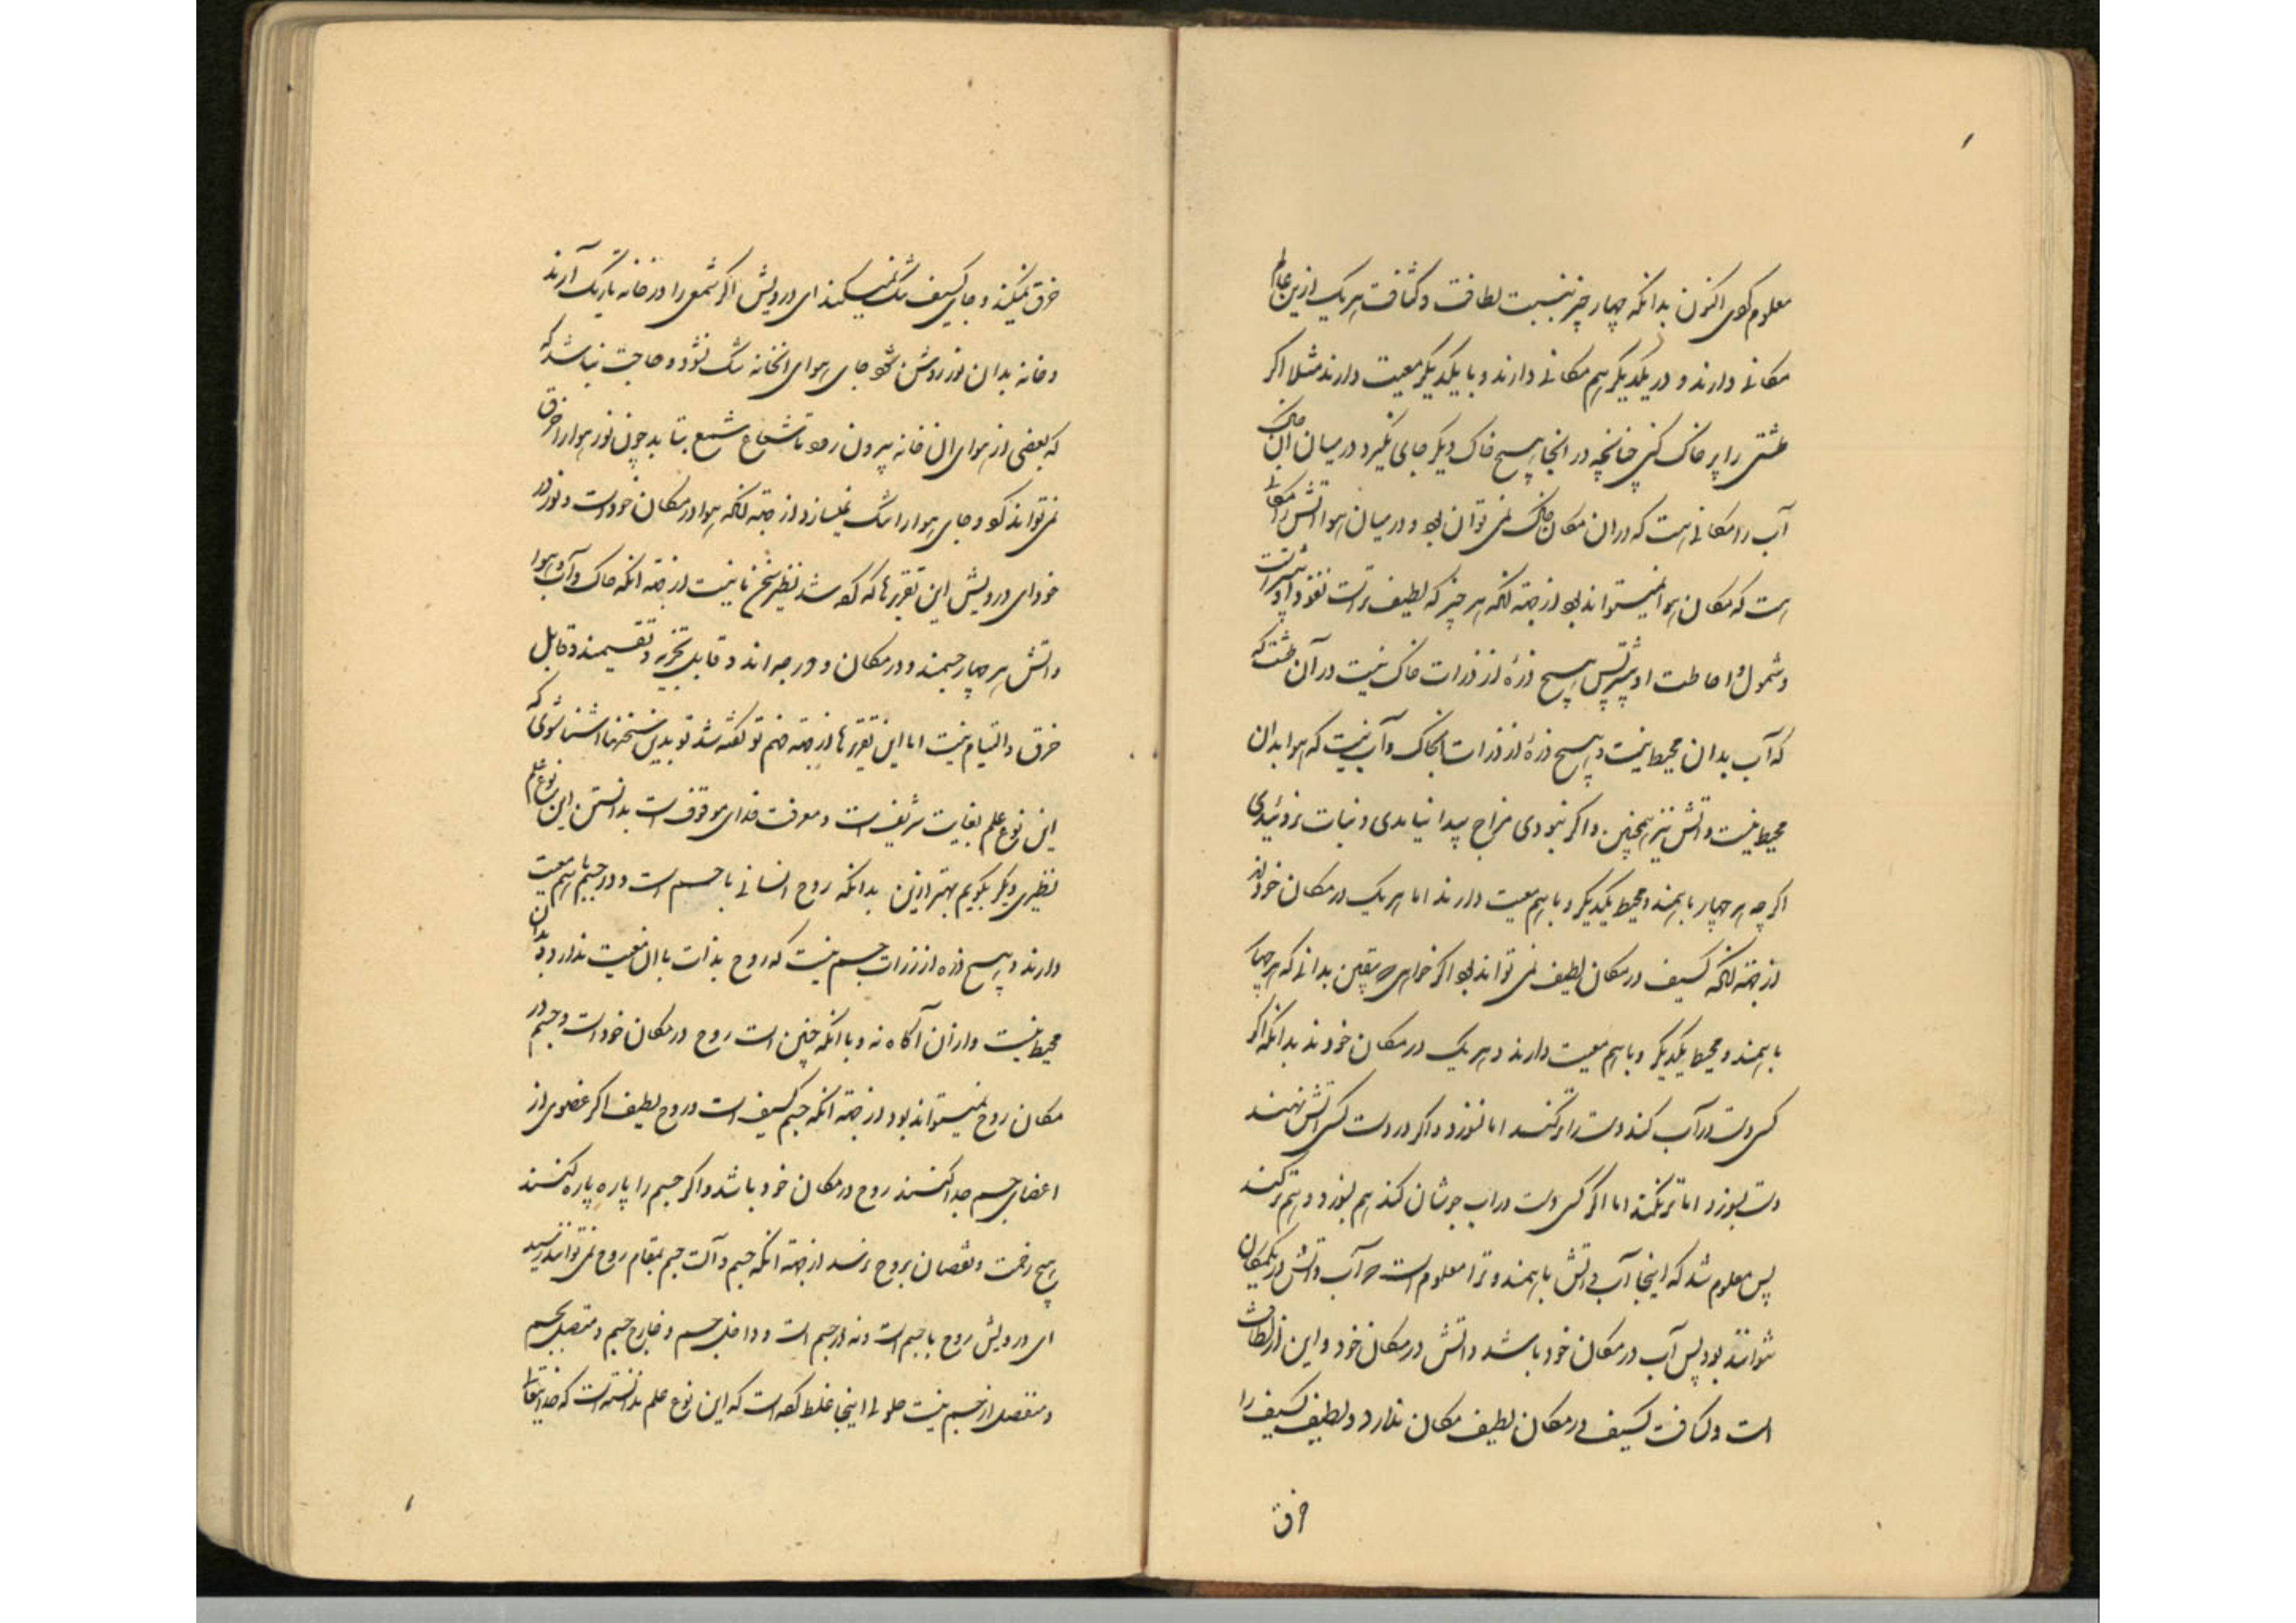 معلوم کوی اکنون بدانکه چهار چیز بنسبت لطافت و کثافت هر یک ازین عالم
مکانی دارند و در یکدیکر هم مکانی دارند و با یکدیکر معیت دارند مثلا اکر
طشتی را پر خاک کنی چنانچه در انجا هیچ خاک دیکر جای نکیرد در میان آن خاک
آب را مکانی هست که در ان مکان خاک نمی توان بود و در میان هوا آتش را مکانی
هست که مکان هوا نمیتواند بود از جهته آنکه هر چیز که لطیف تر است نفوذ او بیشتر است
و شمول و احاطت او بیشتر پس هیچ ذرهٔ از ذرات خاک نیست در آن طشت که
که آب بدان محیط نیست و هیچ ذرهٔ از ذرات خاک و آب نیست که هوا بدان
محیط نیست و آتش نیز همچنین و اکر نبودی مزاج پیدا نیامدی و نبات نروئیدی
اکر چه هر چهار با همند و محیط یکدیکر و با هم معیت دارند اما هر یک در مکان خودند
از جهته آنکه کسیف در مکان لطیف نمی تواند بود اکر خواهی که یقین بدانی که هر چهار
با همند و محیط یکدیکر و با هم معیت دارند و هر یک در مکان خودند بدانکه اکر
کسی دست در آب کند دست را تر کند اما نسوزد و اکر در دست کسی آتش نهند
دست بسوزد اما تر نکند اما اکر کسی دست در اب جوشان کند هم بسوزد و هم تر کند
پس معلوم شد که اینجا آب و آتش با همند و ترا معلوم است که آب و آتش در یکمکان
نتوانند بود پس آب در مکان خود باشد و آتش در مکان خود و این از لطافت
است و کسافت کسیف در مکان لطیف مکان ندارد و لطیف کسیف را
خرق
خرق نمیکند و جای کسیف تنک نمیکند ای درویش اکر شمعی را در خانه تاریک آرند
و خانه بدان نور روشن شود جای هوای انخانه تنک نشود و حاجت نباشد که
که بعضی از هوای ان خانه بیرون رود تا شعاع شمع بتابد چون نور هوا را خرق
نمی تواند کرد و جای هوا را تنک نمیسازد از جهته آنکه هوا در مکان خود است و نور در
خود ای درویش این تقریرها که کرده شد نظیر سخن ما نیست از جهته انکه خاک و آب و هوا
و آتش هر چهار جسمند و در مکان و در جهه اند و قابل تجزیه و تقسیمند و قابل
خرق و التیام نیست اما این تقریرها از جهته فهم تو کفته شد تو بدین سخنها آشنا شوی که
این نوع علم بغایت شریف است و معرفت خدای موقوف است بدانستن این نوع علم
نظیری دیکر بکویم بهتر ازین بدانکه روح انسانی با جسم است و در جسم با هم معیت
دارند و هیچ ذره از ذرات جسم نیست که روح بذات با ان معیت ندارد و بدان
محیط نیست و از ان آکاه نه و با انکه چنین است روح در مکان خود است و جسم در
مکان روح نمیتواند بود از جهته انکه جسم کسیف است و روح لطیف اکر عضوی از
اعضای جسم جدا کنند روح در مکان خود باشد و اکر جسم را پاره پاره کنند
هیچ زحمت و نقصان بروح نرسد از جهته انکه جسم و آلت جسم بمقام روح نمی توانند رسید
ای درویش روح با جسم است و نه در جسم است و داخل جسم و خارج جسم و متصل بجسم
و منفصل از جسم نیست حلولی اینجا غلط کرده است که این نوع علم ندانسته است که خدایتعالی